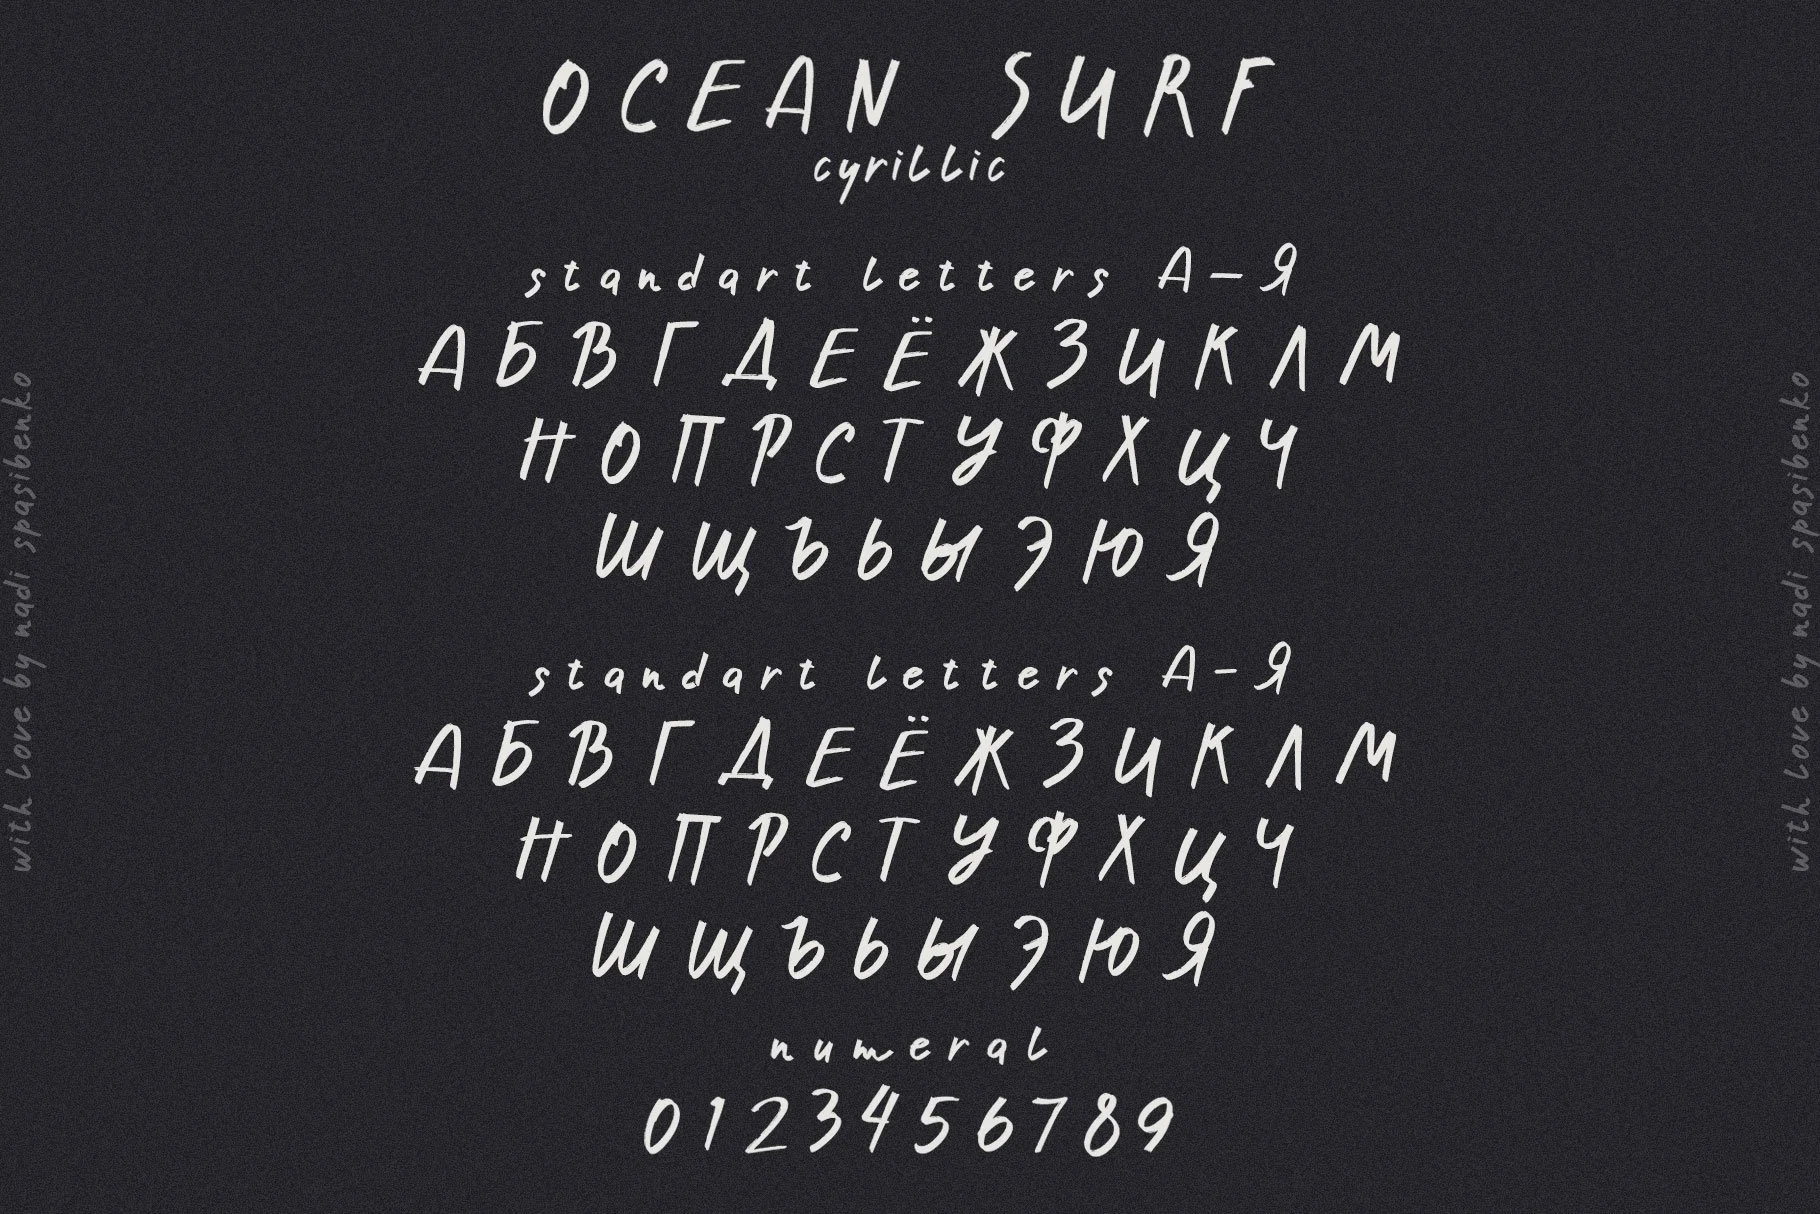 OCEAN SURF
cyrillic
standart letters А-Я
А Б В Г Д Е Ё Ж З И К Л М
Н О П Р С Т У Ф Х Ц Ч
Ш Щ Ъ Ь Ы Э Ю Я
standart letters А-Я
А Б В Г Д Е Ё Ж З И К Л М
Н О П Р С Т У Ф Х Ц Ч
Ш Щ Ъ Ь Ы Э Ю Я
numeral
0 1 2 3 4 5 6 7 8 9
with love by nadi spasibenko
with love by nadi spasibenko